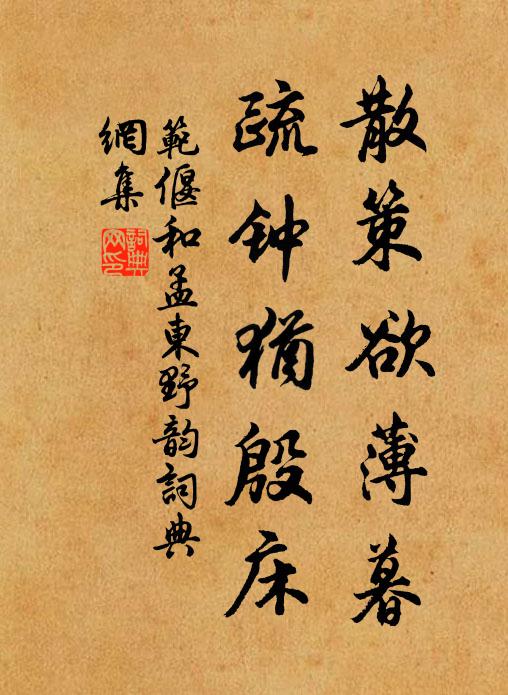 散策欲薄暮
疏钟犹殷床
範偃和孟東野韵詞典
網集
詞典網印